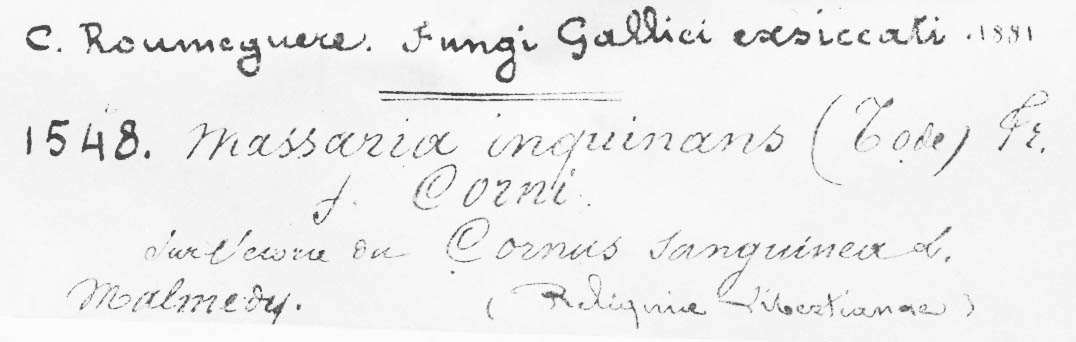 C. Roumeguere. Fungi Gallici exsiccati. 1881
1548. Massaria inquinans (Tode) Fr.
f. Corni.
Sur l'ecorce du Cornus sanguinea L.
Malmedy. (Reliquiae Libertianae)